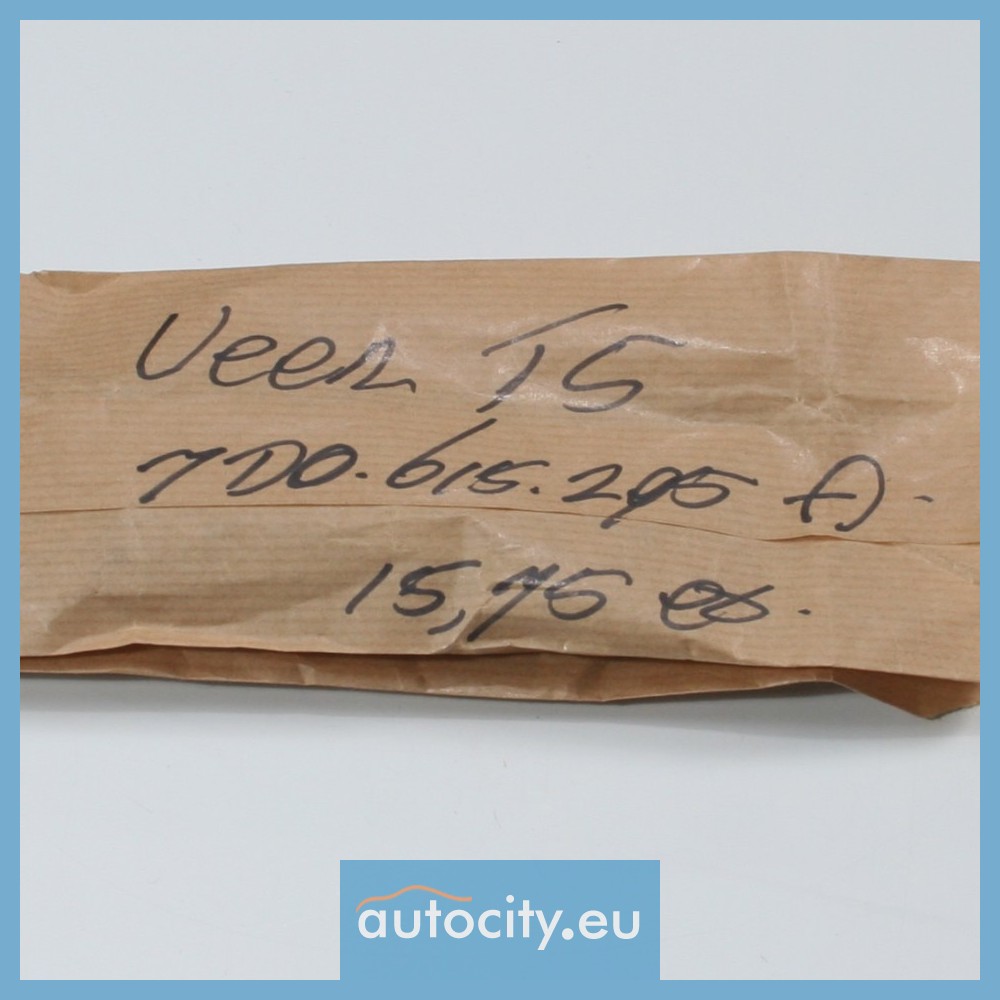 Veer T5
7D0.615.295 A.
15,75
autocity.eu